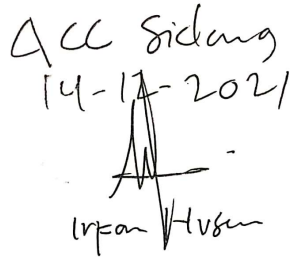 ACC Sidang
14-12-2021
Irfan Husen